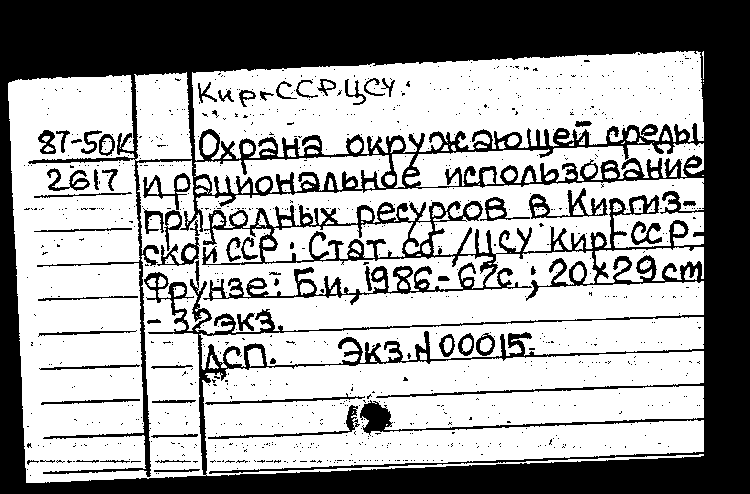 КиргССР.ЦСУ.
87-50К Охрана окружающей среды
2617 и рациональное использование
природных ресурсов в Киргиз-
ской ССР : Стат. сб. /ЦСУ КиргССР.-
Фрунзе: Б.и., 1986.- 67с. ; 20×29 cm
- 32 экз.
ДСП. Экз.N 00015.